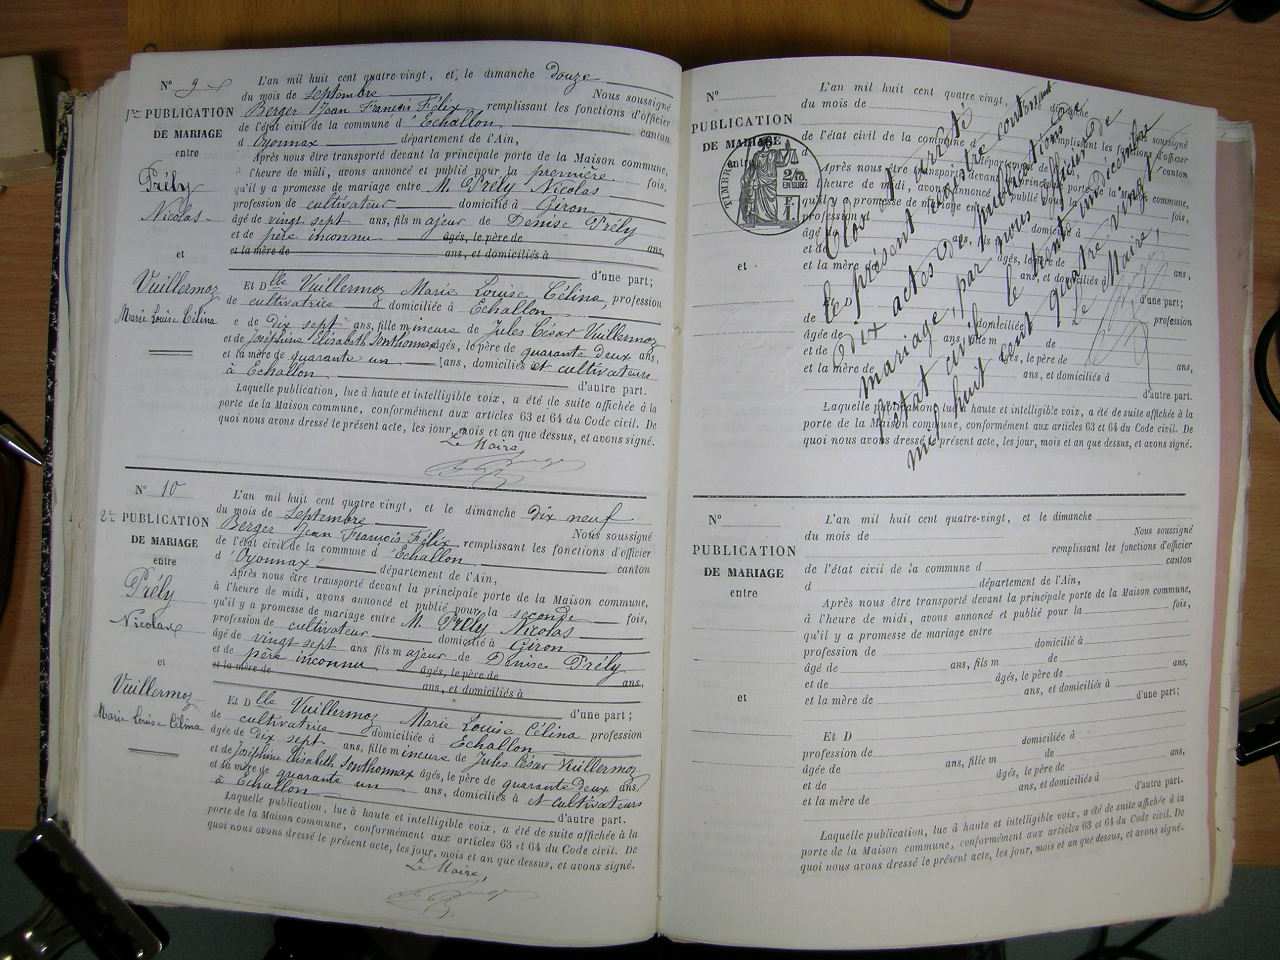 N° 9
1re PUBLICATION
DE MARIAGE
entre
Prély
Nicolas
et
Vuillermoz
Marie Louise Célina
L'an mil huit cent quatre vingt, et le dimanche douze
du mois de septembre Nous soussigné
Berger Jean François Félix remplissant les fonctions d'officier
de l'état civil de la commune d'Echallon canton
d'Oyonnax département de l'Ain,
Après nous être transporté devant la principale porte de la Maison commune,
à l'heure de midi, avons annoncé et publié pour la première fois,
qu'il y a promesse de mariage entre M. Prély Nicolas
profession de cultivateur domicilié à Giron
âgé de vingt sept ans, fils majeur de Denise Prély
et de père inconnu âgés, le père de ans,
et la mère de ans, et domiciliés à
d'une part;
Et Dlle Vuillermoz Marie Louise Célina, profession
de cultivatrice domiciliée à Echallon
e de dix sept ans, fille mineure de Jules César Vuillermoz
et de Joséphine Elisabeth Sonthonnax âgés, le père de quarante deux ans,
et la mère de quarante un ans, domiciliés et cultivateurs
à Echallon d'autre part.
Laquelle publication, lue à haute et intelligible voix, a été de suite affichée à la
porte de la Maison commune, conformément aux articles 63 et 64 du Code civil. De
quoi nous avons dressé le présent acte, les jour, mois et an que dessus, et avons signé.
Le Maire,
N° 10
2e PUBLICATION
DE MARIAGE
entre
Prély
Nicolas
et
Vuillermoz
Marie Louise Célina
L'an mil huit cent quatre vingt, et le dimanche dix neuf
du mois de Septembre Nous soussigné
Berger Jean François Félix remplissant les fonctions d'officier
de l'état civil de la commune d'Echallon canton
d'Oyonnax département de l'Ain,
Après nous être transporté devant la principale porte de la Maison commune,
à l'heure de midi, avons annoncé et publié pour la seconde fois,
qu'il y a promesse de mariage entre M. Prély Nicolas
profession de cultivateur domicilié à Giron
âgé de vingt sept ans fils majeur de Denise Prély
et de père inconnu âgés, le père de ans,
et la mère de ans, et domiciliés à
d'une part;
Et Dlle Vuillermoz Marie Louise Célina profession
de cultivatrice domiciliée à Echallon
âgée de dix sept ans, fille mineure de Jules César Vuillermoz
et de Joséphine Elisabeth Sonthonnax âgés, le père de quarante deux ans,
et la mère de quarante un ans, domiciliés à et cultivateurs
à Echallon d'autre part.
Laquelle publication, lue à haute et intelligible voix, a été de suite affichée à la
porte de la Maison commune, conformément aux articles 63 et 64 du Code civil. De
quoi nous avons dressé le présent acte, les jour, mois et an que dessus, et avons signé.
Le Maire,
N°
PUBLICATION
DE MARIAGE
entre
et
TIMBRE
L'an mil huit cent quatre vingt, dimanche
du mois de Nous soussigné
remplissant les fonctions d'officier
de l'état civil de la commune d canton
d département de l'Ain,
Après nous être transporté devant la principale porte de la Maison commune,
à l'heure de midi, avons annoncé et publié pour la fois,
qu'il y a promesse de mariage entre
profession d domicilié à
âgé de ans, fils m de
et de âgés, le père de ans,
et la mère de ans, et domiciliés à
d'une part;
Et D profession
de domiciliée
âgée de ans, fille m de
et de âgés, le père de ans,
et la mère de ans, et domiciliés à
d'autre part.
Laquelle publication, lue à haute et intelligible voix, a été de suite affichée à la
porte de la Maison commune, conformément aux articles 63 et 64 du Code civil. De
quoi nous avons dressé le présent acte, les jour, mois et an que dessus, et avons signé.
Clos et arrêté
le présent registre contenant
dix actes de publications de
mariage, par nous officier de
l'état civil le trente un décembre
mil huit cent quatre vingt
Le Maire,
N°
PUBLICATION
DE MARIAGE
entre
et
L'an mil huit cent quatre-vingt, et le dimanche
du mois de Nous soussigné
remplissant les fonctions d'officier
de l'état civil de la commune d canton
d département de l'Ain,
Après nous être transporté devant la principale porte de la Maison commune,
à l'heure de midi, avons annoncé et publié pour la fois,
qu'il y a promesse de mariage entre
profession de domicilié à
âgé de ans, fils m de
et de âgés, le père de ans,
et la mère de ans, et domiciliés à
d'une part;
Et D
profession de domiciliée à
âgée de ans, fille m de
et de âgés, le père de ans,
et la mère de ans, et domiciliés à
d'autre part.
Laquelle publication, lue à haute et intelligible voix, a été de suite affichée à la
porte de la Maison commune, conformément aux articles 63 et 64 du Code civil. De
quoi nous avons dressé le présent acte, les jour, mois et an que dessus, et avons signé.